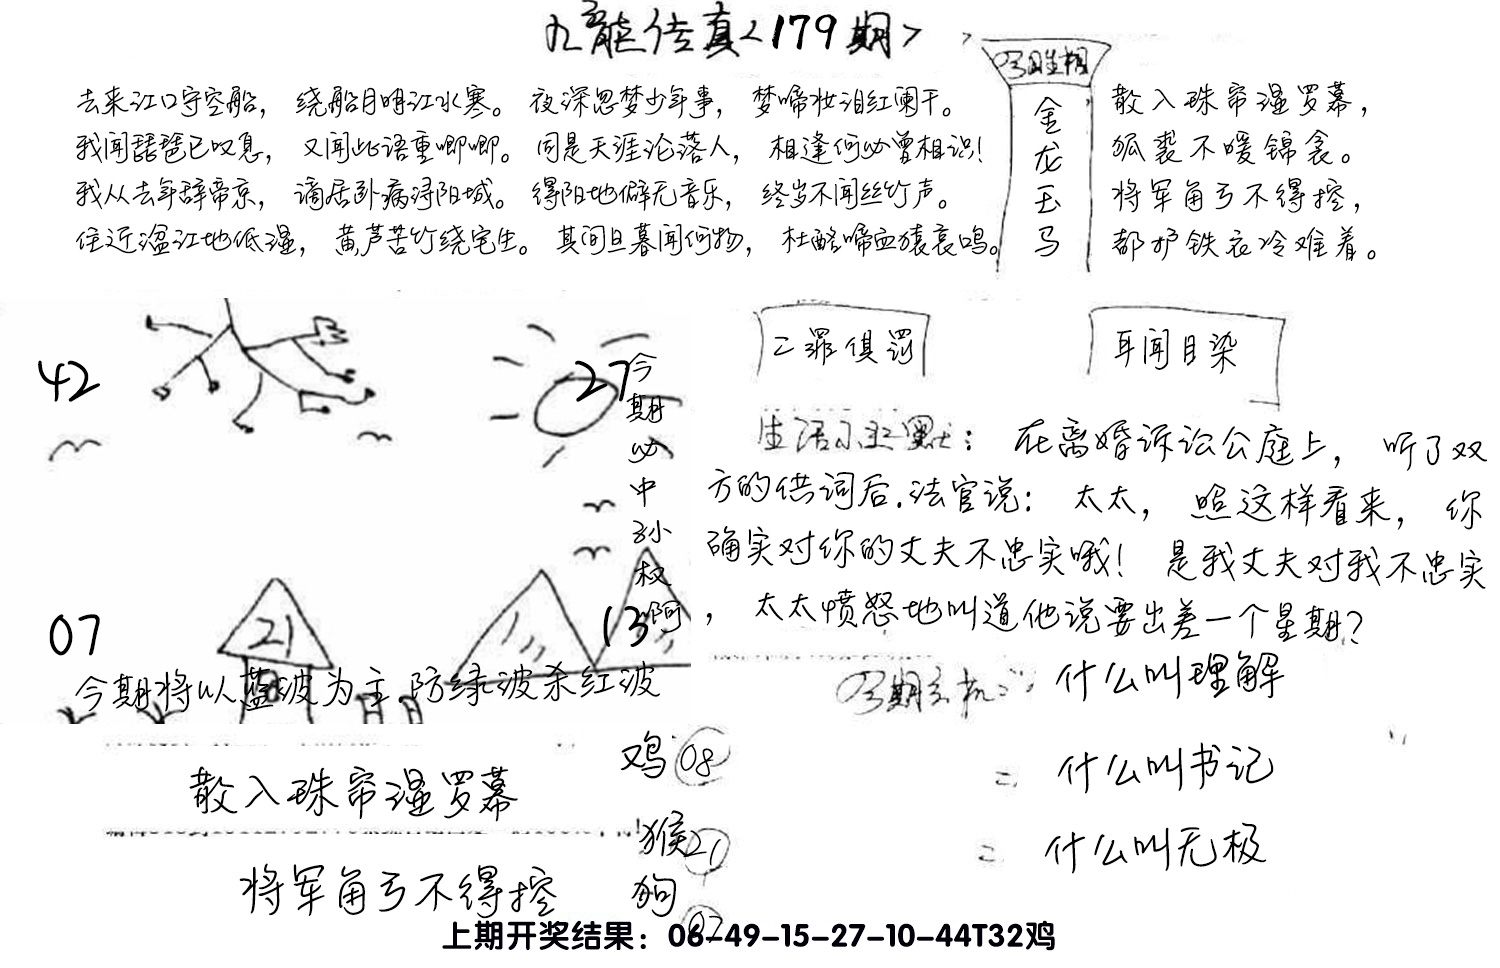 九龍传真<179期>
去来江口守空船， 绕船月明江水寒。 夜深忽梦少年事， 梦啼妆泪红阑干。
我闻琵琶已叹息， 又闻此语重唧唧。 同是天涯沦落人， 相逢何必曾相识！
我从去年辞帝京， 谪居卧病浔阳城。 浔阳地僻无音乐， 终岁不闻丝竹声。
住近湓江地低湿， 黄芦苦竹绕宅生。 其间旦暮闻何物， 杜鹃啼血猿哀鸣。
金
龙
玉
马
散入珠帘湿罗幕，
狐裘不暖锦衾。
将军角弓不得控，
都护铁衣冷难着。
42
27
今期必中孙权啊
07
21
13
今期将以蓝波为主.防绿波杀红波
二罪俱罚
耳闻目染
生活小幽默： 在离婚诉讼公庭上， 听了双
方的供词后.法官说： 太太， 照这样看来， 你
确实对你的丈夫不忠实哦！ 是我丈夫对我不忠实
， 太太愤怒地叫道他说要出差一个星期？
什么叫理解
什么叫书记
什么叫无极
散入珠帘湿罗幕
将军角弓不得控
鸡 08
猴 21
狗 07
上期开奖结果：06-49-15-27-10-44T32鸡